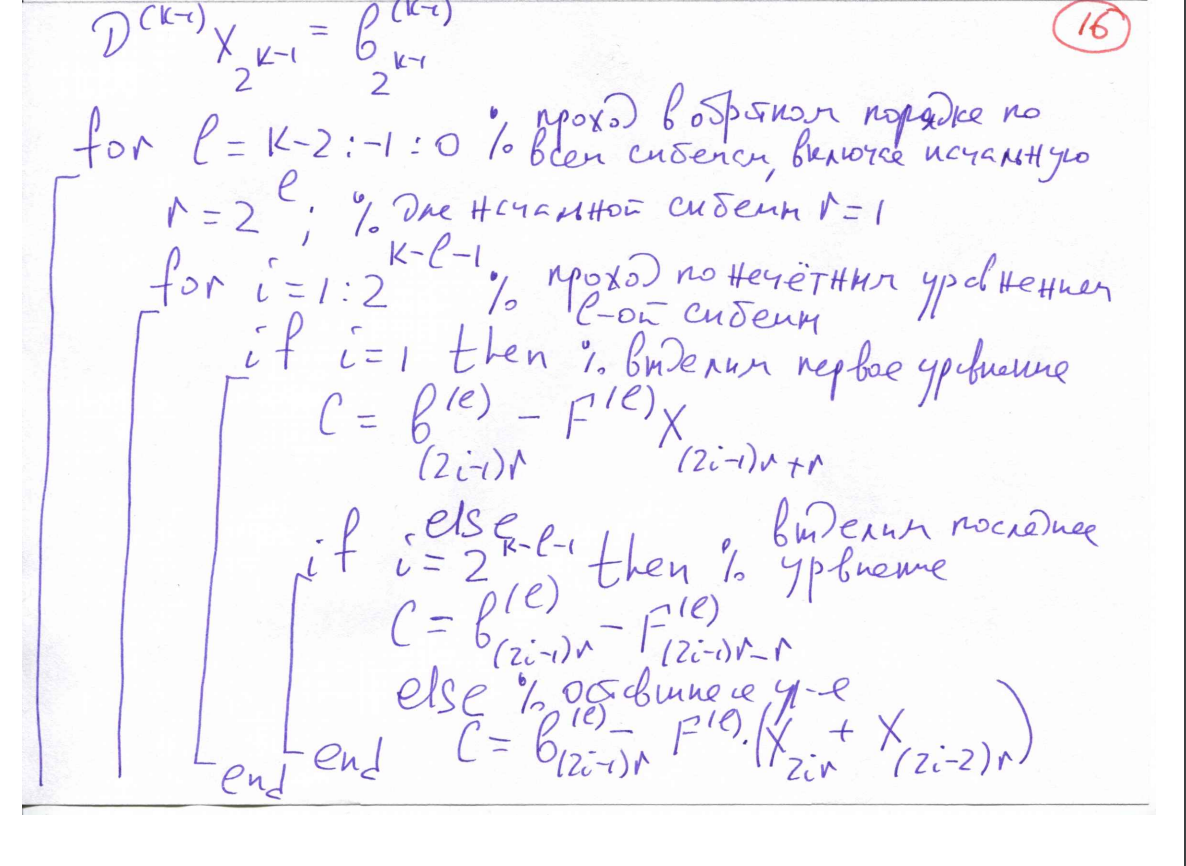 16
D^(k-1) x_{2^{k-1}} = b^{(k-1)}_{2^{k-1}}
for l = k-2 : -1 : 0 % проход в обратном порядке по
всем системам, включая начальную
r = 2^l ; % для начальной системы r = 1
for i = 1 : 2^{k-l-1} % проход по нечётным уравнениям
l-ой системы
if i = 1 then % выделим первое уравнение
C = b^{(l)}_{(2i-1)r} - F^{(l)} x_{(2i-1)r+r}
else
if i = 2^{k-l-1} then % выделим последнее
уравнение
C = b^{(l)}_{(2i-1)r} - F^{(l)}_{(2i-1)r-r}
else % оставшиеся ур-е
C = b^{(l)}_{(2i-1)r} - F^{(l)} · (x_{2ir} + x_{(2i-2)r})
end
end